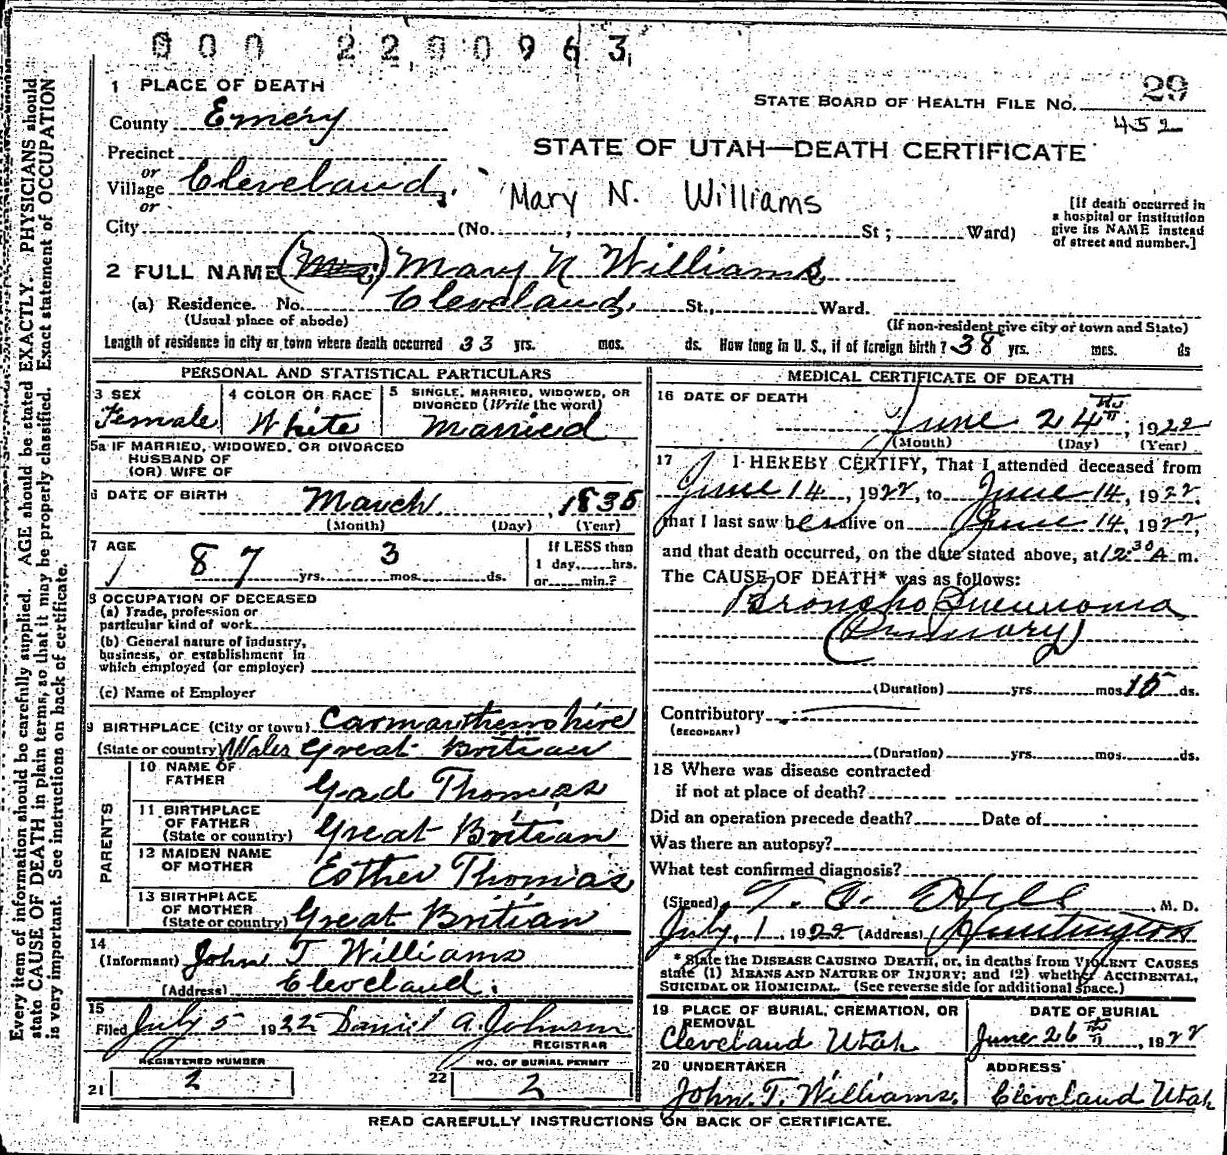 000 2290963
29
STATE BOARD OF HEALTH FILE NO.
452
1 PLACE OF DEATH
County Emery
STATE OF UTAH—DEATH CERTIFICATE
Precinct
or
Village Cleveland.
or
Mary N. Williams
City (No. , St ; Ward)
[If death occurred in
a hospital or institution
give its NAME instead
of street and number.]
2 FULL NAME (Mrs.) Mary N Williams
(a) Residence. No. Cleveland. St., Ward.
(Usual place of abode)
(If non-resident give city or town and State)
Length of residence in city or town where death occurred 33 yrs. mos. ds. How long in U. S., if of foreign birth? 38 yrs. mos. ds
PERSONAL AND STATISTICAL PARTICULARS
3 SEX
Female
4 COLOR OR RACE
White
5 SINGLE, MARRIED, WIDOWED, OR
DIVORCED (Write the word)
Married
5a IF MARRIED, WIDOWED, OR DIVORCED
HUSBAND OF
(OR) WIFE OF
6 DATE OF BIRTH March , 1835
(Month) (Day) (Year)
7 AGE
87 yrs. 3 mos. ds.
If LESS than
1 day, hrs.
or min.?
8 OCCUPATION OF DECEASED
(a) Trade, profession or
particular kind of work
(b) General nature of industry,
business, or establishment in
which employed (or employer)
(c) Name of Employer
9 BIRTHPLACE (City or town) Carmarthenshire
(State or country) Wales Great Britian
PARENTS
10 NAME OF
FATHER
Gad Thomas
11 BIRTHPLACE
OF FATHER
(State or country) Great Britian
12 MAIDEN NAME
OF MOTHER
Esther Thomas
13 BIRTHPLACE
OF MOTHER
(State or country) Great Britian
14
(Informant) John T Williams
(Address) Cleveland.
15
Filed July 5 1922 Daniel A. Johnson
REGISTRAR
REGISTERED NUMBER
21 2
NO. OF BURIAL PERMIT
22 2
MEDICAL CERTIFICATE OF DEATH
16 DATE OF DEATH
June 24th, 1922
(Month) (Day) (Year)
17 I HEREBY CERTIFY, That I attended deceased from
June 14, 1922, to June 14, 1922,
that I last saw her alive on June 14, 1922,
and that death occurred, on the date stated above, at 12:30 A m.
The CAUSE OF DEATH* was as follows:
Broncho Pneumonia
(Primary)
(Duration) yrs. mos 15 ds.
Contributory
(SECONDARY)
(Duration) yrs. mos. ds.
18 Where was disease contracted
if not at place of death?
Did an operation precede death? Date of
Was there an autopsy?
What test confirmed diagnosis?
(Signed) T. C. Hill , M. D.
July 1 1922 (Address) Huntington
* State the DISEASE CAUSING DEATH, or, in deaths from VIOLENT CAUSES
state (1) MEANS AND NATURE OF INJURY; and (2) whether ACCIDENTAL,
SUICIDAL OR HOMICIDAL. (See reverse side for additional space.)
19 PLACE OF BURIAL, CREMATION, OR
REMOVAL
Cleveland Utah
DATE OF BURIAL
June 26th, 1922
20 UNDERTAKER
John. T. Williams.
ADDRESS
Cleveland Utah
READ CAREFULLY INSTRUCTIONS ON BACK OF CERTIFICATE.
Every item of information should be carefully supplied. AGE should be stated EXACTLY. PHYSICIANS should
state CAUSE OF DEATH in plain terms, so that it may be properly classified. Exact statement of OCCUPATION
is very important. See instructions on back of certificate.